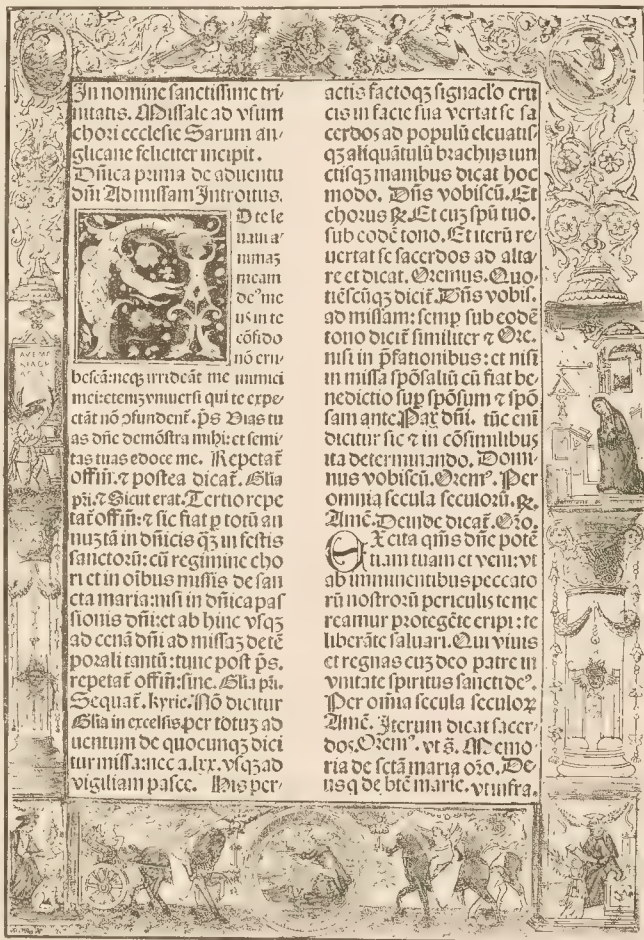 In nomine sanctissime tri⸗
nitatis. Missale ad vsum
chori ecclesie Sarum an⸗
glicane feliciter incipit.
Dñica prima de aduentu
dñi Ad missam Introitus.
AD te le
uaui a⸗
nimaȝ
meam
deꝰ me
us in te
cõfido
nõ eru⸗
bescã: neqꝫ irrideãt me inimici
mei: etemȝ vniuersi qui te expe⸗
ctãt nõ ꝯfundent̃. p̃s Vias tu
as dñe demõstra mihi: et semi⸗
tas tuas edoce me. Repetat̃
offim̃. ⁊ postea dicat̃. Glia
pr̃i. ⁊ Sicut erat. Tertio repe
tat̃ offim̃: ⁊ sic fiat p̱ totũ an
nuȝ tã in dñicis qȝ in festis
sanctorũ: cũ regimine cho
ri et in oĩbus missis de san
cta maria: nisi in dñica pas
sionis dñi: et ab hinc vsqȝ
ad cenã dñi ad missaȝ de tẽ
porali tantũ: tunc post p̃s.
repetat̃ offim̃: sine. Glia pr̃i.
Sequat̃. kyrie. Nõ dicitur
Glia in excelsis. per totuȝ ad
uentum de quocunqȝ dici
tur missa: nec a. lxx. vsqȝ ad
vigiliam pasce. His per⸗
actis factoqȝ signaclo cru
cis in facie sua vertat se sa
cerdos ad populũ eleuatis⸗
qȝ aliquãtulũ brachijs iun
ctisqȝ manibus dicat hoc
modo. Dñs vobiscũ. Et
chorus ℟. Et cuȝ spũ tuo.
sub eodẽ tono. Et iterũ re⸗
uertat se sacerdos ad alta⸗
re et dicat. Oremus. Quo⸗
tiẽscũqȝ dicit̃. Dñs vobis.
ad missam: semp̱ sub eodẽ
tono dicit̃ similiter ⁊ Ore.
nisi in p̃fationibus: et nisi
in missa spõsaliũ cũ fiat be⸗
nedictio sup̱ spõsum ⁊ spõ
sam ante. Pax dñi. tũc eni
dicitur sic ⁊ in cõsimilibus
ita determinando. Domi⸗
nus vobiscũ. Oremꝰ. Per
omnia secula seculorũ. ℟.
Amẽ. Deinde dicat̃. Oro.
EXcita qm̃s dñe potẽ
tiam tuam et veni: vt
ab imminentibus peccato
rũ nostrorũ periculis te me
reamur protegẽte eripi: te
liberãte saluari. Qui viuis
et regnas cuȝ deo patre in
vnitate spiritus sancti deꝰ.
Per om̃ia secula seculoꝝ
Amẽ. Iterum dicat sacer⸗
dos. Oremꝰ. vt s̃. Memo⸗
ria de sctã maria oro. De⸗
us q̃ de btẽ marie. vt infra.